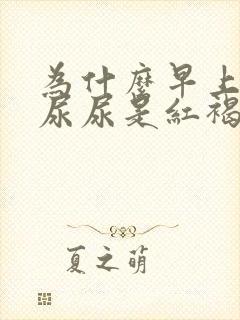 为什麼早上
尿尿是紅褐
夏之萌